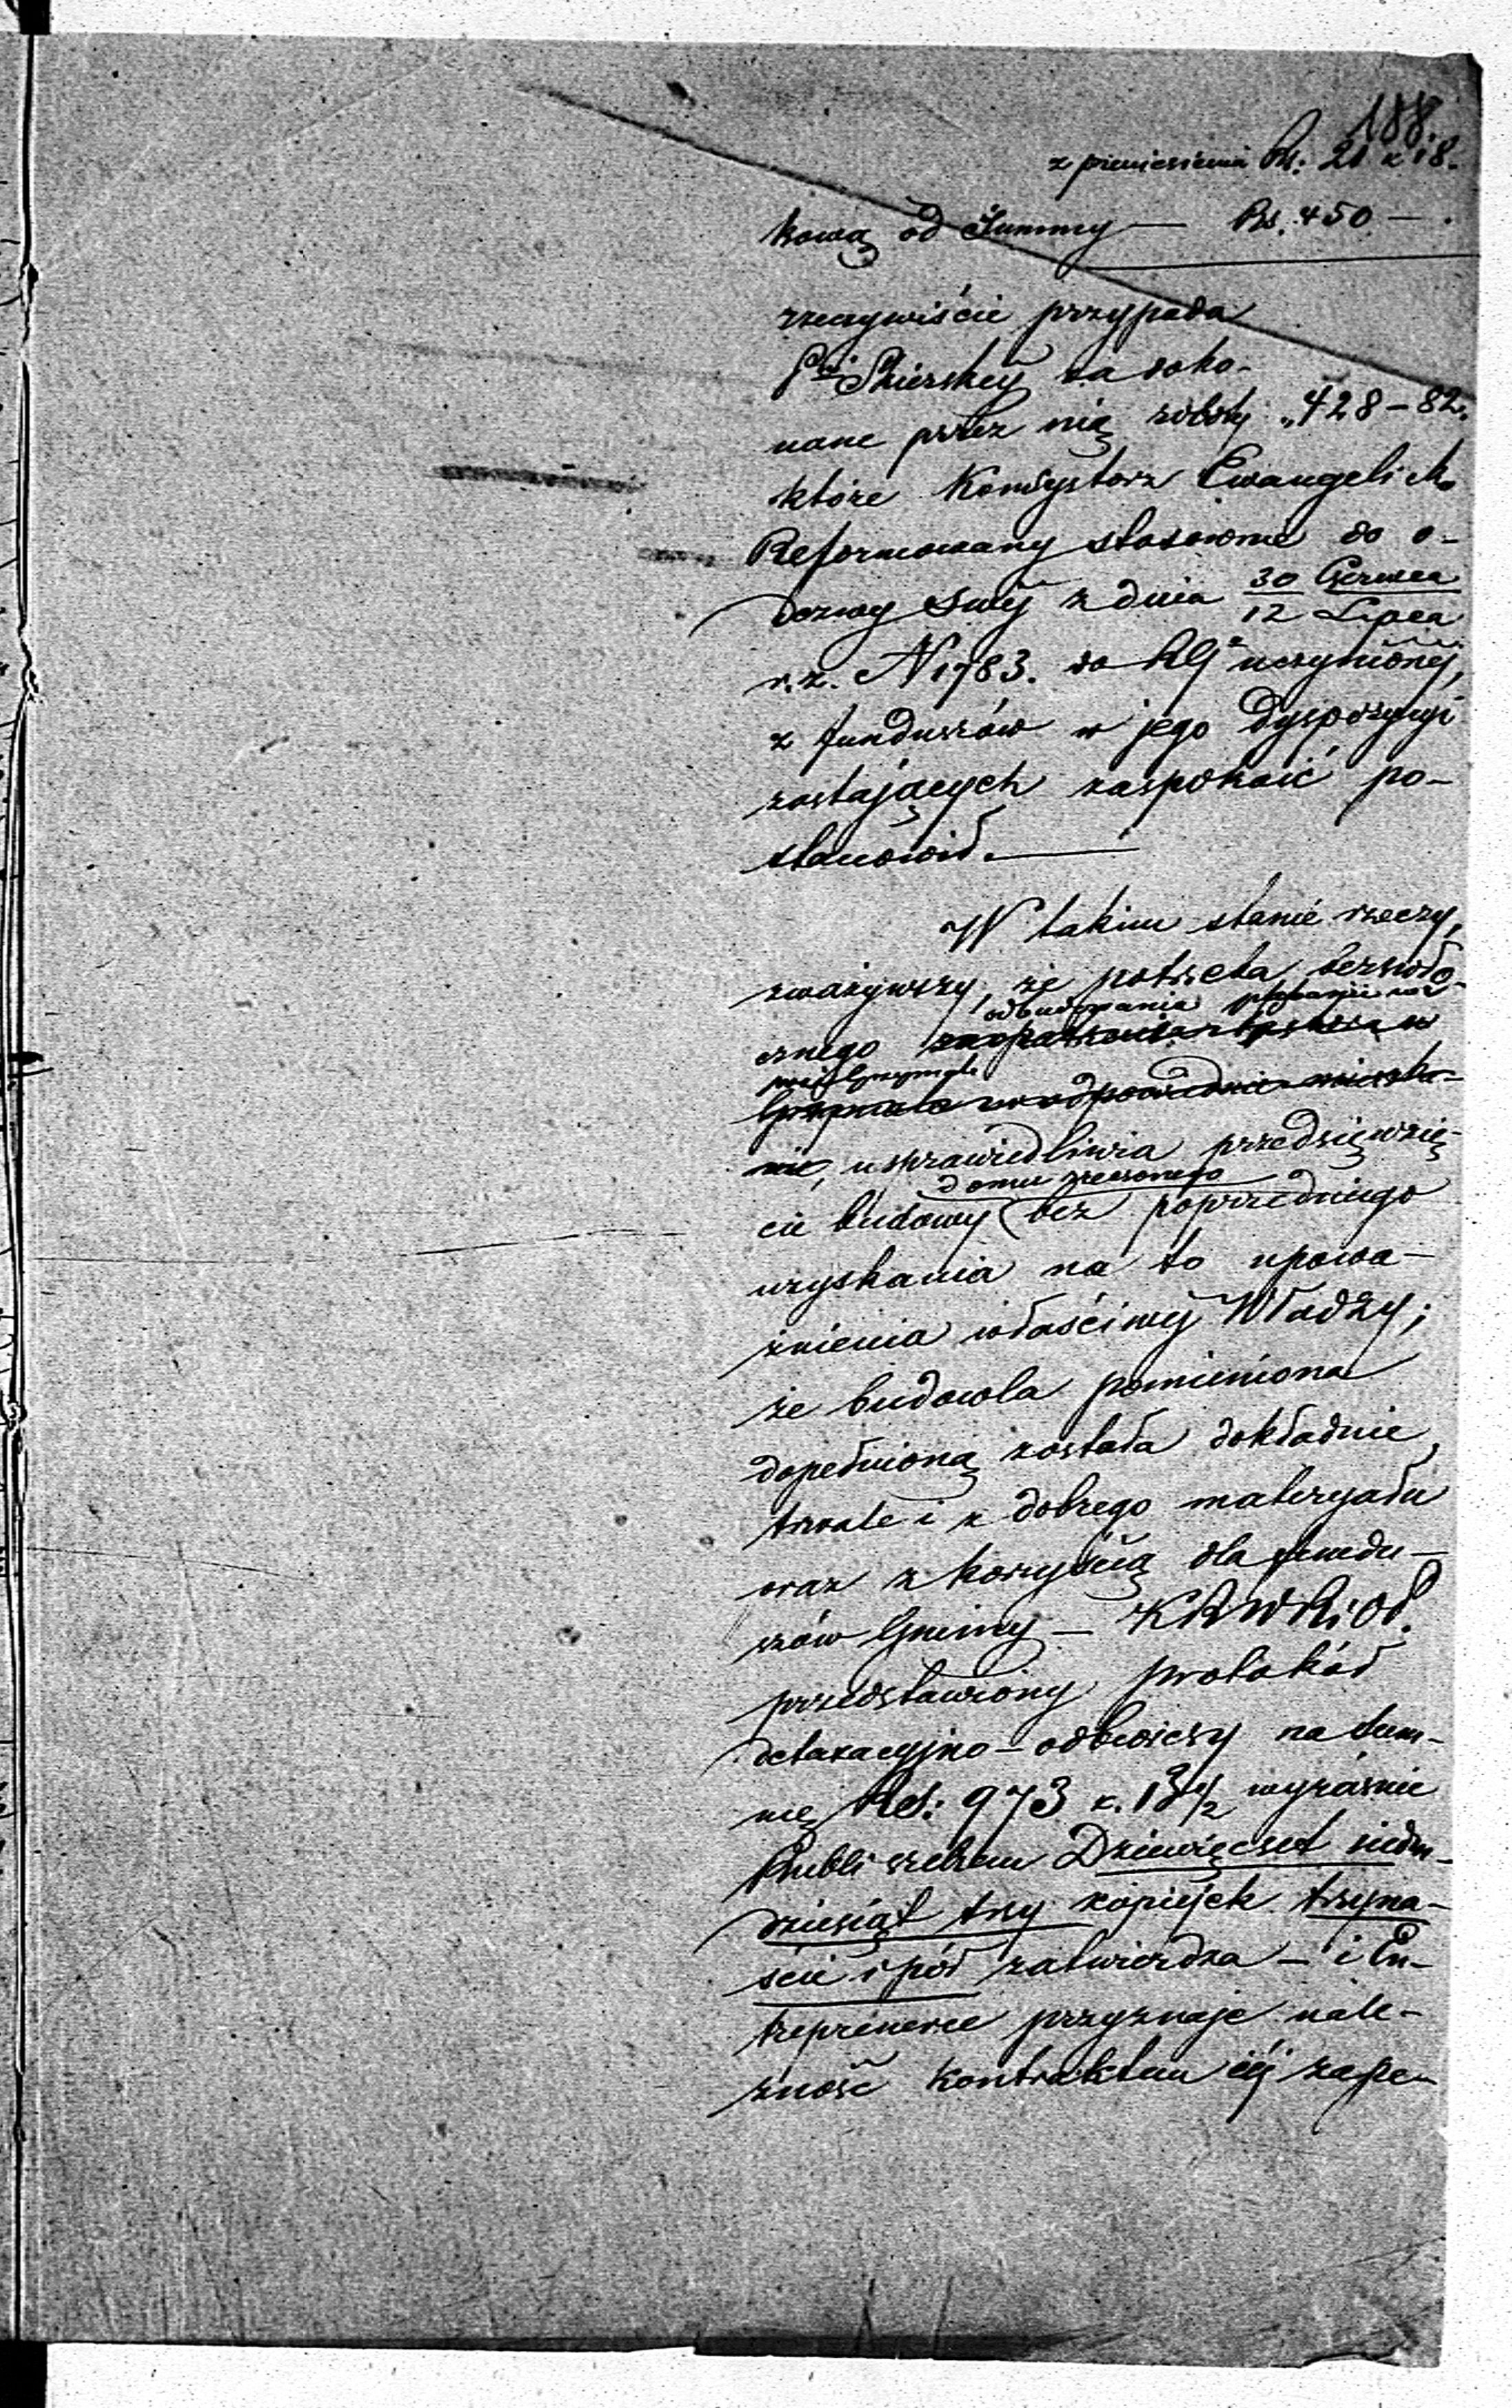 188.
z przeniesienia Rs: 21 k 18.
kową od Summy — Rs. 450 —
rzeczywiście przypada
Pni Skierskiej za doko-
nane przez nią roboty „428 – 82.
które Konsystorz Ewangelicko
Reformowany stosownie do o-
dezwy swej z dnia 30 Czerwca / 12 Lipca
r.z. N 1783. do RG uczynionej,
z funduszów w jego Dyspozycyi
zostających zaspokoić po-
stanowił. —
W takim stanie rzeczy,
zważywszy, że potrzeba bezzwło-
odbudowania plebanii we
cznego zaopatrzenia
wsi Żychlin
w odpowiednie mieszka-
nie, usprawiedliwia przedsięwzię-
domu rzeczonego
cie budowy bez poprzedniego
uzyskania na to upowa-
żnienia właściwej Władzy;
że budowla pomieniona
dopełnioną została dokładnie,
trwale i z dobrego materyału
oraz z korzyścią dla fundu-
szów Gminy — KRWRiOP.
przedstawiony protokół
detaxacyjno-odbiorczy na sum-
mę Rs: 973 k. 13 1/2 wyraźnie
Rubli srebrem Dziewięćset siedm-
dziesiąt trzy kopiejek trzyna-
ście i pół zatwierdza — i En-
treprenerce przyznaje nale-
żność kontraktem jej zape-